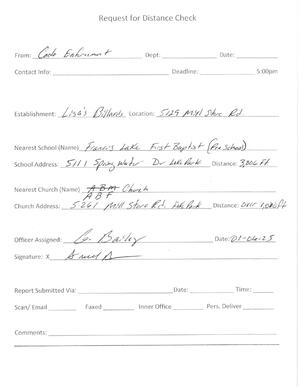 Request for Distance Check
From: Code Enforcement Dept: Date:
Contact Info: Deadline: 5:00pm
Establishment: Lisa's Billiards Location: 5129 Mill Store Rd
Nearest School (Name) Francis Lake First Baptist (Pre School)
School Address: 5111 Spring Water Dr Lake Park Distance: 3,006 Ft
Nearest Church (Name) ABM Church
ABF
Church Address: 5261 Mill Store Rd Lake Park Distance: over
Officer Assigned: G. Bailey Date: 01-06-25
Signature: X
Report Submitted Via: Date: Time:
Scan/ Email Faxed Inner Office Pers. Deliver
Comments: